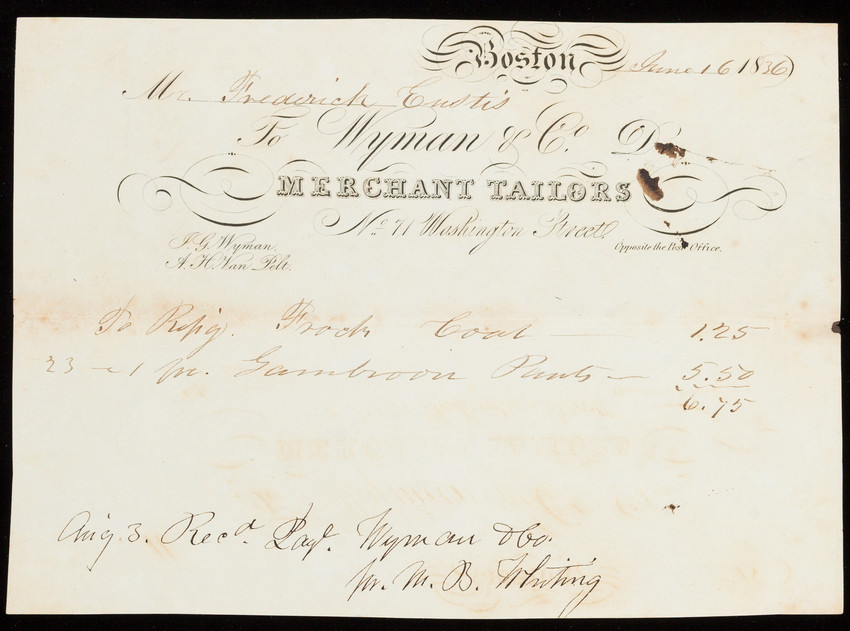 Boston June 16 1836
Mr. Frederick Eustis
To Wyman & Co. Dr
MERCHANT TAILORS
No. 71 Washington Street.
Opposite the Post Office.
J. G. Wyman.
A. H. Van Pelt.
To Repg. Frock Coat — 1.25
23 — 1 pr. Gambroon Pants — 5.50
6.75
Aug 3. Recd. Payt. Wyman & Co.
pr. M. B. Whiting